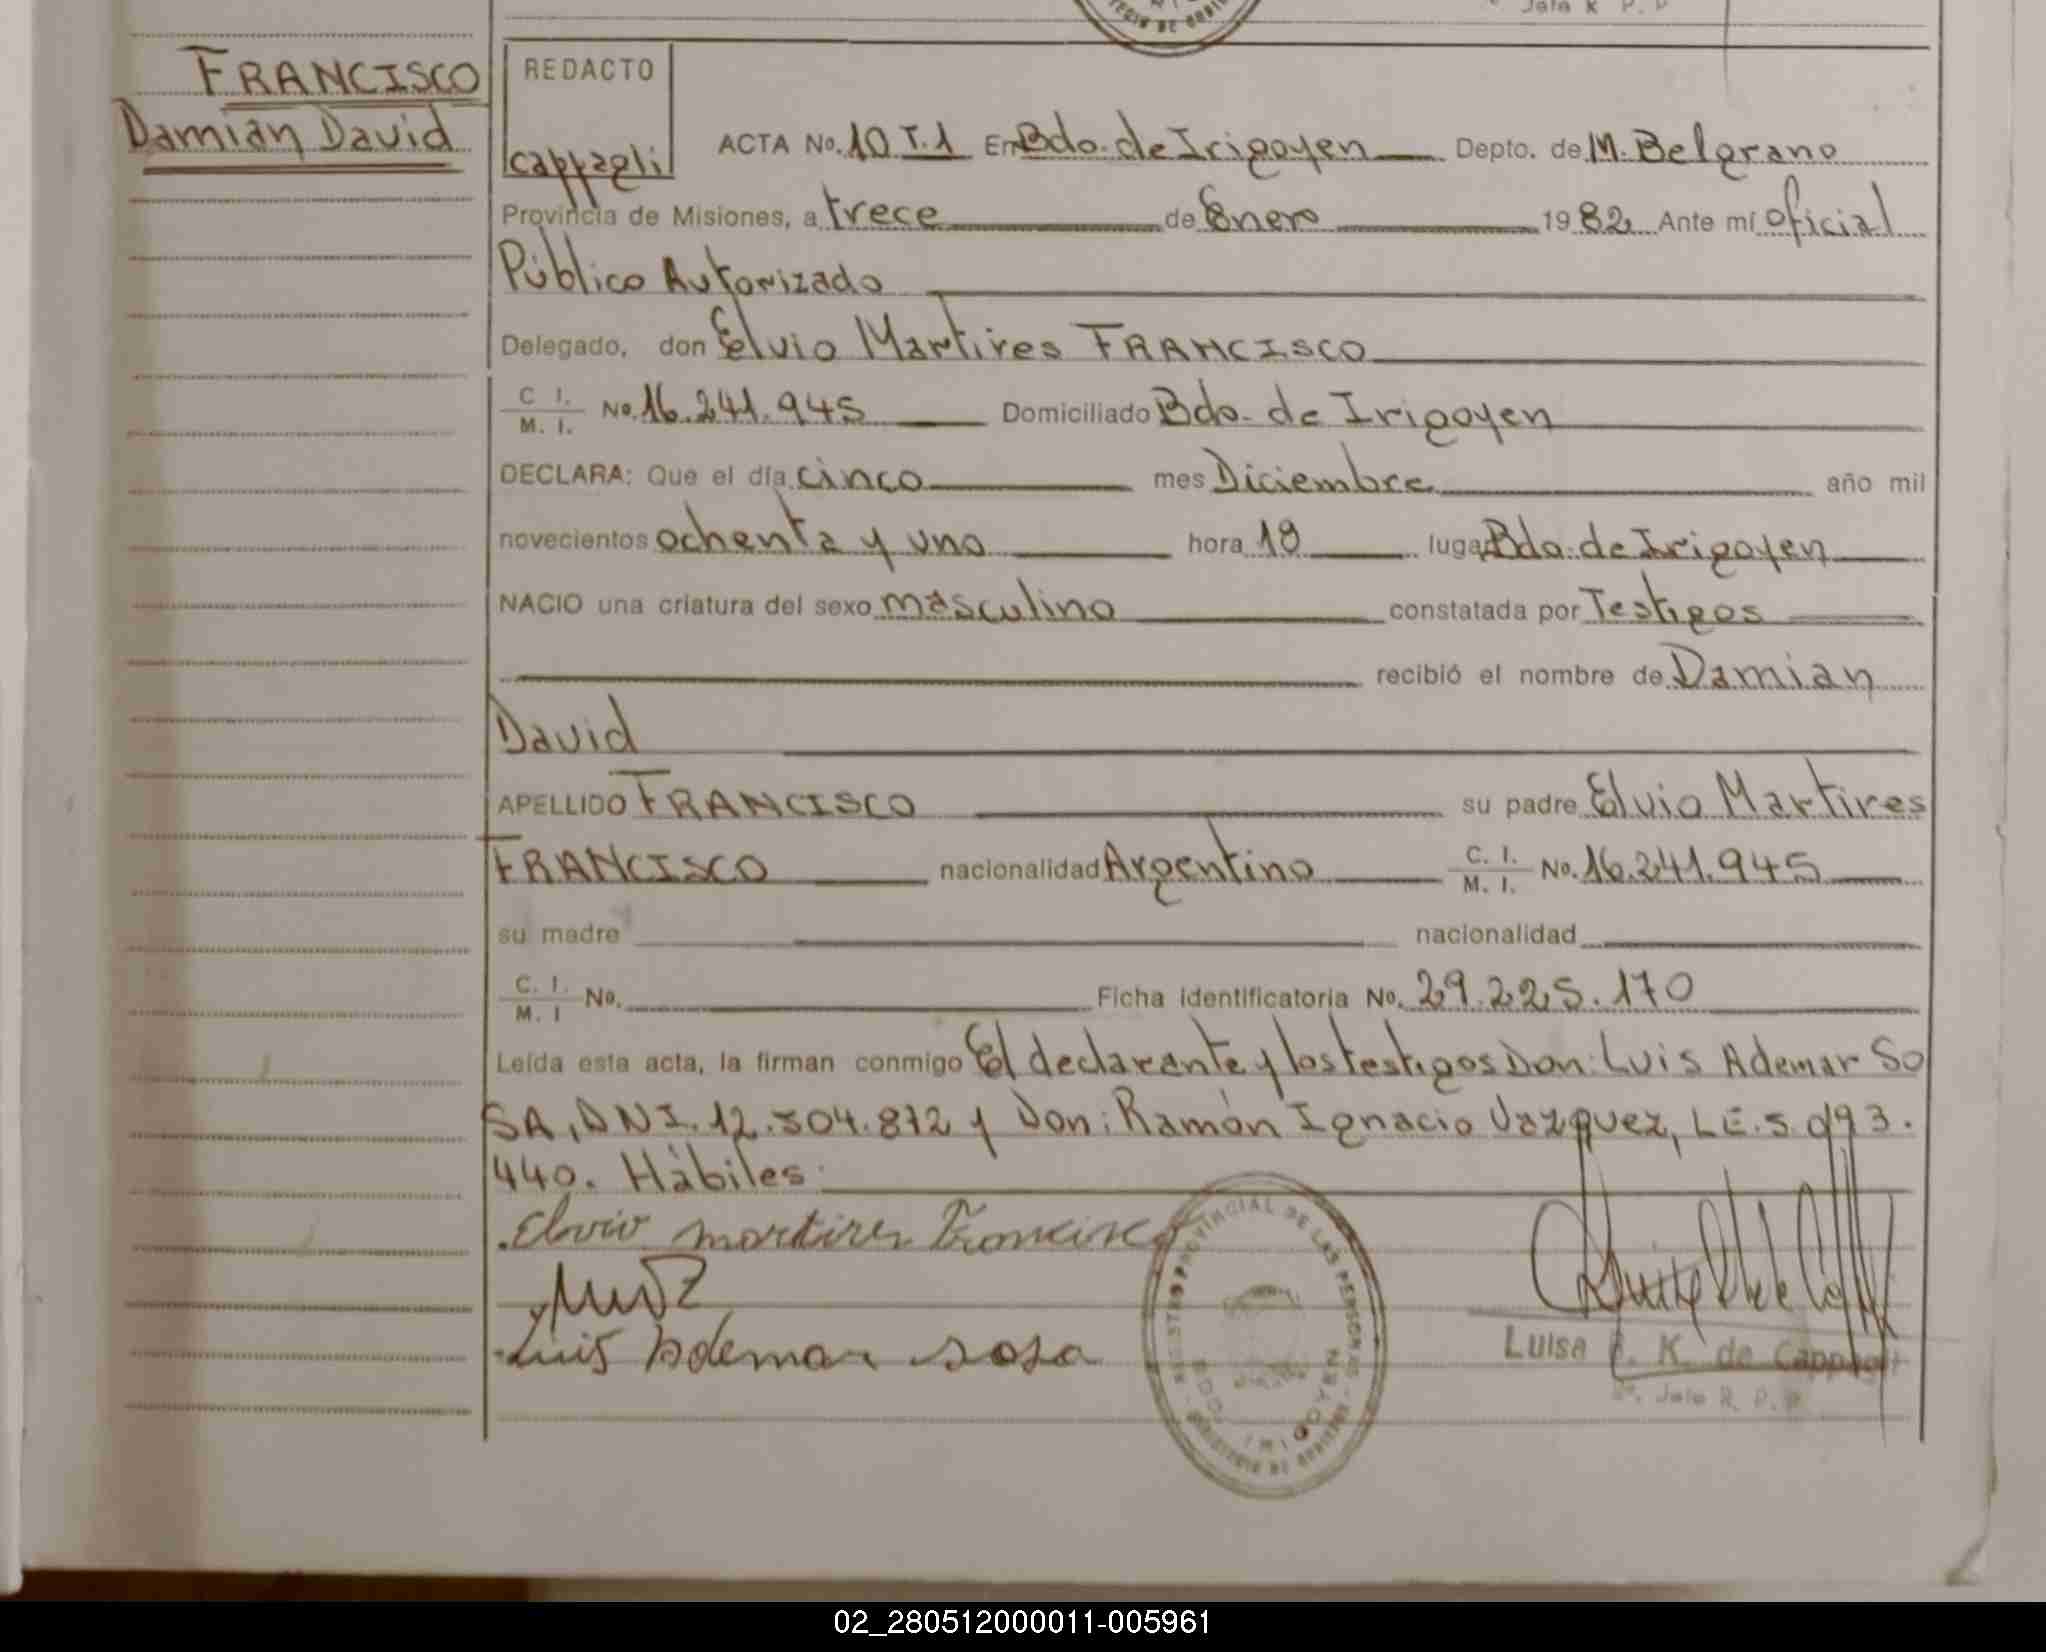 FRANCISCO
Damián David
REDACTO
cappagli
ACTA No. 10 T.1 En Bdo. de Irigoyen Depto. de M. Belgrano
Provincia de Misiones, a trece de Enero 1982 Ante mí oficial
Público Autorizado
Delegado, don Elvio Martires FRANCISCO
C I. M. I. No. 16.241.945 Domiciliado Bdo. de Irigoyen
DECLARA: Que el día cinco mes Diciembre año mil
novecientos ochenta y uno hora 18 lugar Bdo. de Irigoyen
NACIO una criatura del sexo masculino constatada por Testigos
recibió el nombre de Damián
David
APELLIDO FRANCISCO su padre Elvio Martires
FRANCISCO nacionalidad Argentino C. I. M. I. No. 16.241.945
su madre nacionalidad
C. I. M. I No. Ficha identificatoria No. 29.225.170
Leída esta acta, la firman conmigo El declarante y los testigos Don: Luis Ademar So
SA, DNI. 12.504.872 y Don: Ramón Ignacio Vazquez, LE. 5.093.
440. Hábiles.
Elvio martires Francisco
Luis Ademar sosa
REGISTRO PROVINCIAL DE LAS PERSONAS
BDO. DE IRIGOYEN
MINISTERIO DE GOBIERNO
Luisa K. de Cappagli
Jefe R. P. P.
02_280512000011-005961